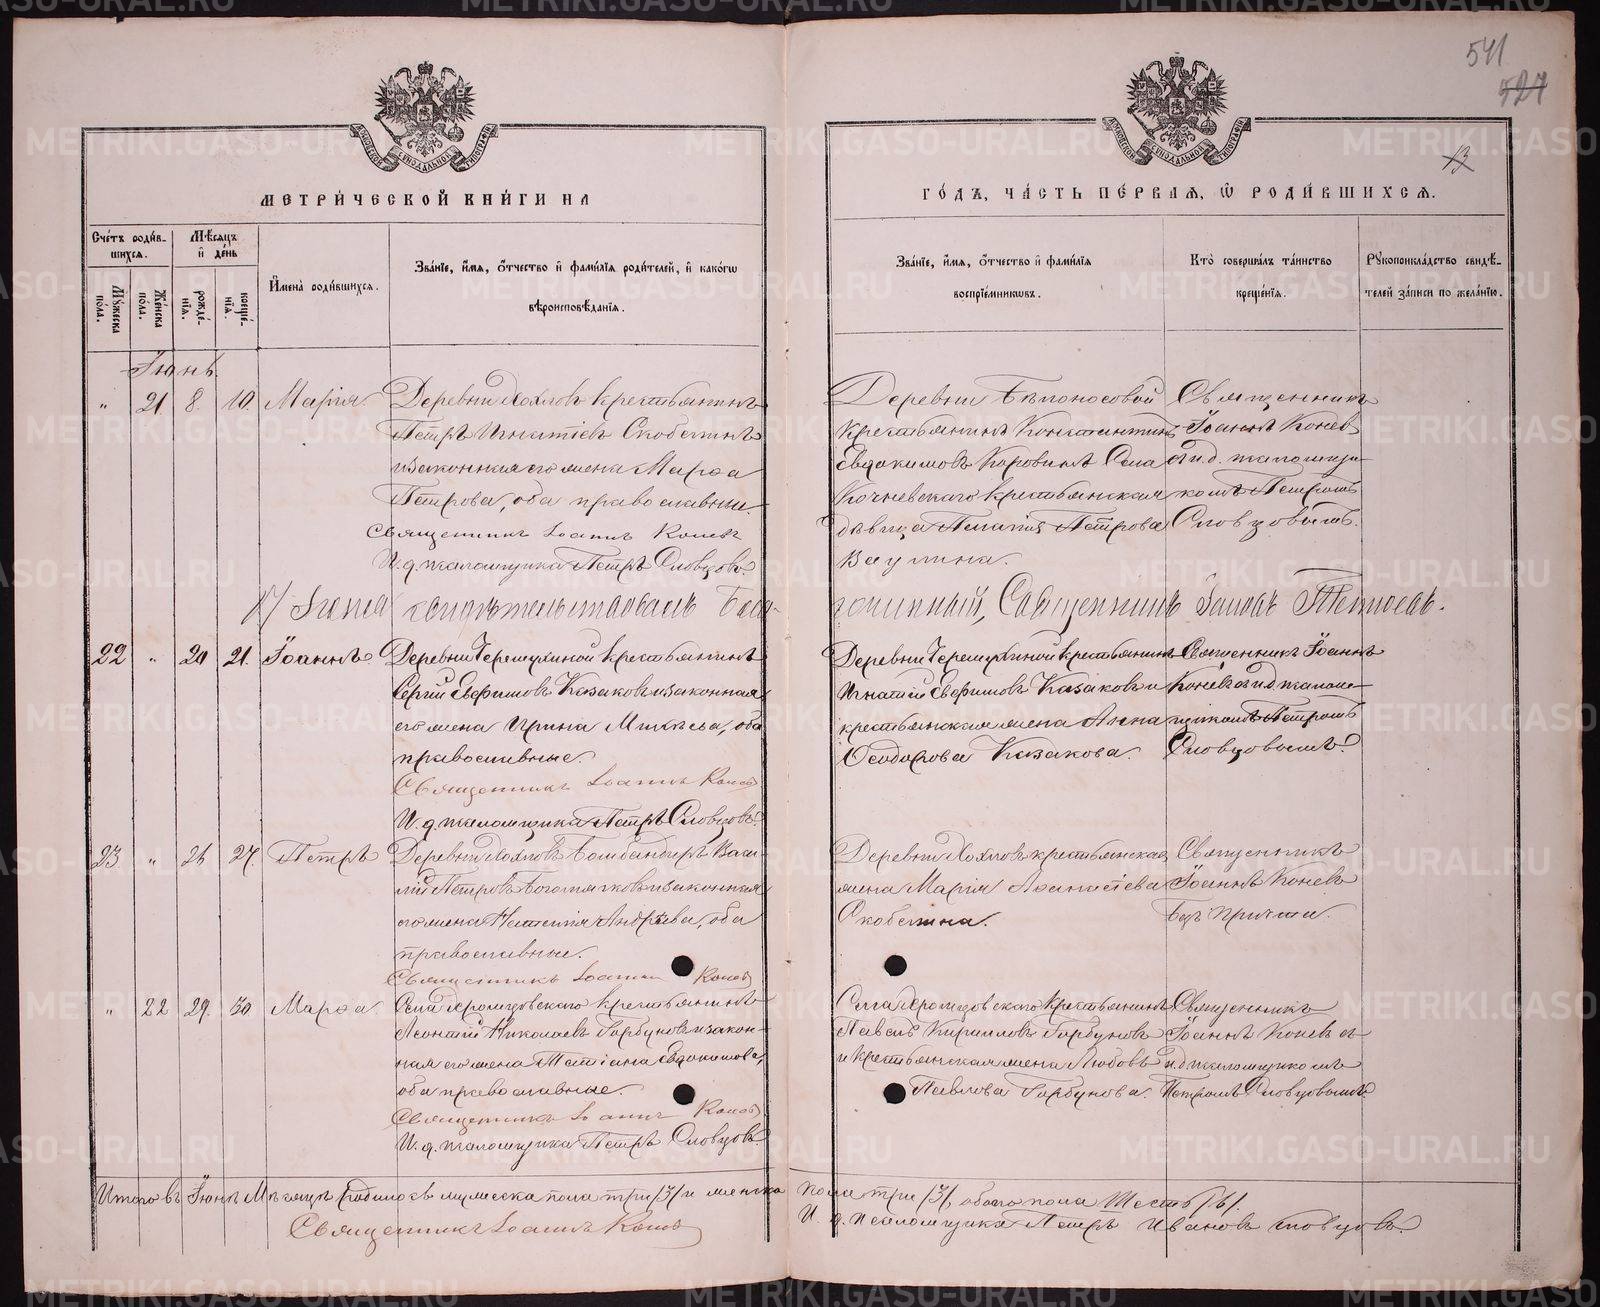 541
527
13
МЕТРИ́ЧЕСКОЙ КНИ́ГИ НА
ГО́ДЪ, ЧА́СТЬ ПЕ́РВАЯ, Ѡ РОДИ́ВШИХСЯ.
Сче́тъ роди́в-
шихся.
Мѣ́сяцъ
и де́нь
Мꙋ́жеска по́ла.
Же́нска по́ла.
рожде́-
нїя.
креще́-
нїя.
Имена̀ роди́вшихся.
Зва́нїе, и́мя, ѻ́тчество и фами́лїя роди́телей, и како́гѡ
вѣроисповѣ́данїя.
Зва́нїе, и́мя, ѻ́тчество и фами́лїя
воспрїе́мникѡвъ.
Кто̀ соверша́лъ та́инство
креще́нїя.
Рꙋкоприкла́дство свидѣ́-
телей за́писи по жела́нїю.
Іюнь.
" 21 8. 10. Марія.
Деревни Хохловъ крестьянинъ
Петръ Игнатіевъ Скобелинъ
и законная его жена Марѳа
Петрова, оба православные.
Священникъ Іоаннъ Коневъ
И. д. псаломщика Петръ Словцовъ.
Деревни Бѣлоносовой
крестьянинъ Константинъ
Евдокимовъ Коровинъ Села
Кочневскаго крестьянская
дѣвица Пелагія Петрова
Ваулина.
Священникъ
Іоаннъ Коневъ
съ и. д. псаломщи-
комъ Петромъ
Словцовымъ.
Іюня свидѣтельствовалъ Благо-
чинный, Священникъ
22 " 20 21. Іоаннъ
Деревни Черемухиной крестьянинъ
Сергій Евфимовъ Казаковъ и законная
его жена Ирина Михѣева, оба
православные.
Священникъ Іоаннъ Коневъ
И. д. псаломщика Петръ Словцовъ.
Деревни Черемухиной крестьянинъ
Игнатій Евфимовъ Казаковъ и
крестьянская жена Анна
Ѳеодорова Казакова.
Священникъ Іоаннъ
Коневъ съ и. д. псалом-
щикомъ Петромъ
Словцовымъ.
23 " 26 27. Петръ
Деревни Хохловъ Бомбандиръ Васи-
лій Петровъ Богомягковъ и законная
его жена Наталія Андреева, оба
православные.
Священникъ Іоаннъ Коневъ
Деревни Хохловъ крестьянская
жена Марія Аѳанасіева
Скобелина.
Священникъ
Іоаннъ Коневъ
безъ причта.
" 22 29. 30 Марѳа
Села Хромцовскаго крестьянинъ
Леонтій Николаевъ Горбуновъ и закон-
ная его жена Татіана Евдокимова,
оба православные.
Священникъ Іоаннъ Коневъ
И. д. псаломщика Петръ Словцовъ.
Села Хромцовскаго крестьянинъ
Павелъ Кирилловъ Горбуновъ
и крестьянская жена Любовь
Павлова Горбунова.
Священникъ
Іоаннъ Коневъ съ
и. д. псаломщикомъ
Петромъ Словцовымъ.
Итого въ Іюнѣ Мѣсяцѣ родилось мужеска пола три /3/ и женска пола три /3/, обоего пола шесть /6/.
Священникъ Іоаннъ Коневъ
И. д. псаломщика Петръ Ивановъ Словцовъ.
METRIKI.GASO-URAL.RU